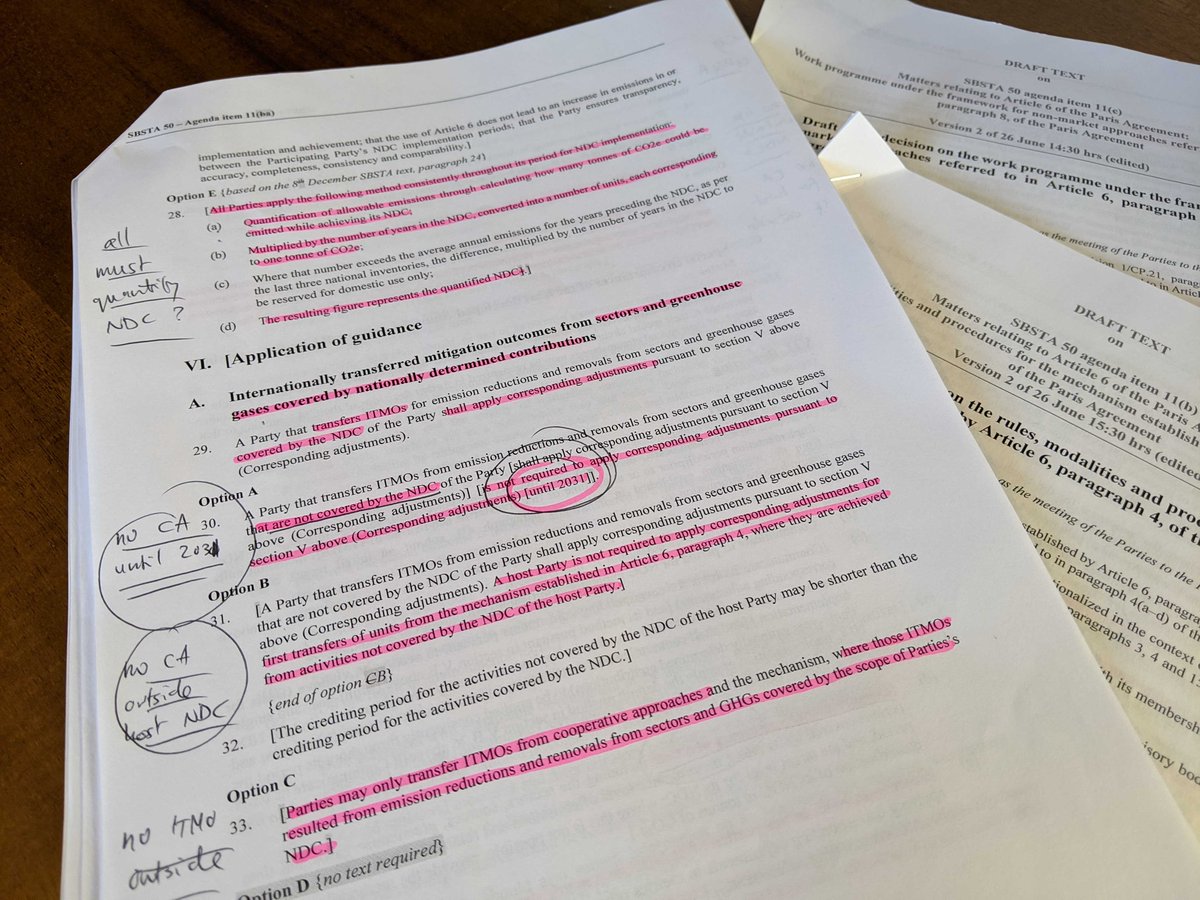 SBSTA 50 – Agenda item 11(ba)
implementation and achievement; that the use of Article 6 does not lead to an increase in emissions in or
between the Participating Party's NDC implementation periods; that the Party ensures transparency,
accuracy, completeness, consistency and comparability.]
Option E {based on the 8th December SBSTA text, paragraph 24}
28. [All Parties apply the following method consistently throughout its period for NDC implementation:
(a) Quantification of allowable emissions through calculating how many tonnes of CO2e could be
emitted while achieving its NDC;
(b) Multiplied by the number of years in the NDC, converted into a number of units, each corresponding
to one tonne of CO2e;
(c) Where that number exceeds the average annual emissions for the years preceding the NDC, as per
the last three national inventories, the difference, multiplied by the number of years in the NDC to
be reserved for domestic use only;
(d) The resulting figure represents the quantified NDC}.]
all
must
quantify
NDC ?
VI. [Application of guidance
A. Internationally transferred mitigation outcomes from sectors and greenhouse
gases covered by nationally determined contributions
29. A Party that transfers ITMOs for emission reductions and removals from sectors and greenhouse gases
covered by the NDC of the Party shall apply corresponding adjustments pursuant to section V above
(Corresponding adjustments).
Option A
30. A Party that transfers ITMOs from emission reductions and removals from sectors and greenhouse gases
that are not covered by the NDC of the Party [shall apply corresponding adjustments pursuant to section V
above (Corresponding adjustments)] [is not required to apply corresponding adjustments pursuant to
section V above (Corresponding adjustments) [until 2031]].
no CA
until 2031
Option B
31. [A Party that transfers ITMOs from emission reductions and removals from sectors and greenhouse gases
that are not covered by the NDC of the Party shall apply corresponding adjustments pursuant to section V
above (Corresponding adjustments). A host Party is not required to apply corresponding adjustments for
first transfers of units from the mechanism established in Article 6, paragraph 4, where they are achieved
from activities not covered by the NDC of the host Party.]
{end of option CB}
no CA
outside
host NDC
32. [The crediting period for the activities not covered by the NDC of the host Party may be shorter than the
crediting period for the activities covered by the NDC.]
Option C
33. [Parties may only transfer ITMOs from cooperative approaches and the mechanism, where those ITMOs
resulted from emission reductions and removals from sectors and GHGs covered by the scope of Parties's
NDC.]
no ITMO
outside
Option D {no text required}
DRAFT TEXT
on
SBSTA 50 agenda item 11(c)
Matters relating to Article 6 of the Paris Agreement:
Work programme under the framework for non-market approaches refer
paragraph 8, of the Paris Agreement
Version 2 of 26 June 14:30 hrs (edited)
Draft decision on the work programme under the fram
mark
oaches referred to in Article 6, paragraph
as the meeting of the Parties to the
1/CP.21, parag
DRAFT TEXT
on
SBSTA 50 agenda item 11(b)
Matters relating to Article 6 of the Paris A
and procedures for the mechanism establish
of the Paris Agreement
Version 2 of 26 June 15:30 hrs (edite
on the rules, modalities and pro
by Article 6, paragraph 4, of t
as the meeting of the Parties to the
established by Article 6, paragra
to in paragraph 4(a–d) of
in the context
paragraphs 3, 4 and
its membersh